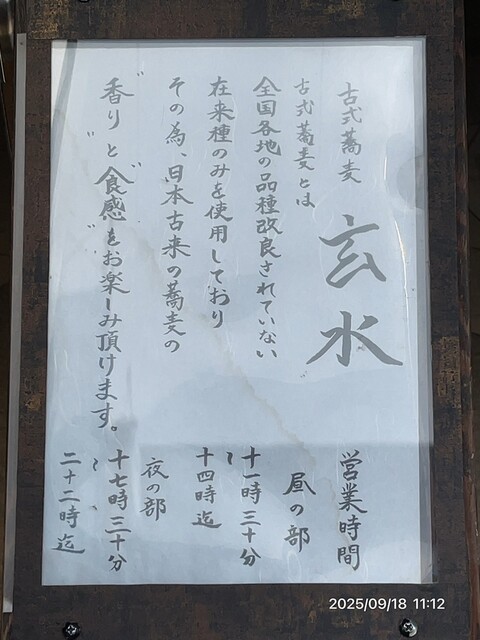 古式蕎麦
玄水
古式蕎麦とは
全国各地の品種改良されていない
在来種のみを使用しており
その為、日本古来の蕎麦の
香りと食感をお楽しみ頂けます。
営業時間
昼の部
十一時三十分
〜
十四時迄
夜の部
十七時三十分
〜
二十二時迄
2025/09/18 11:12